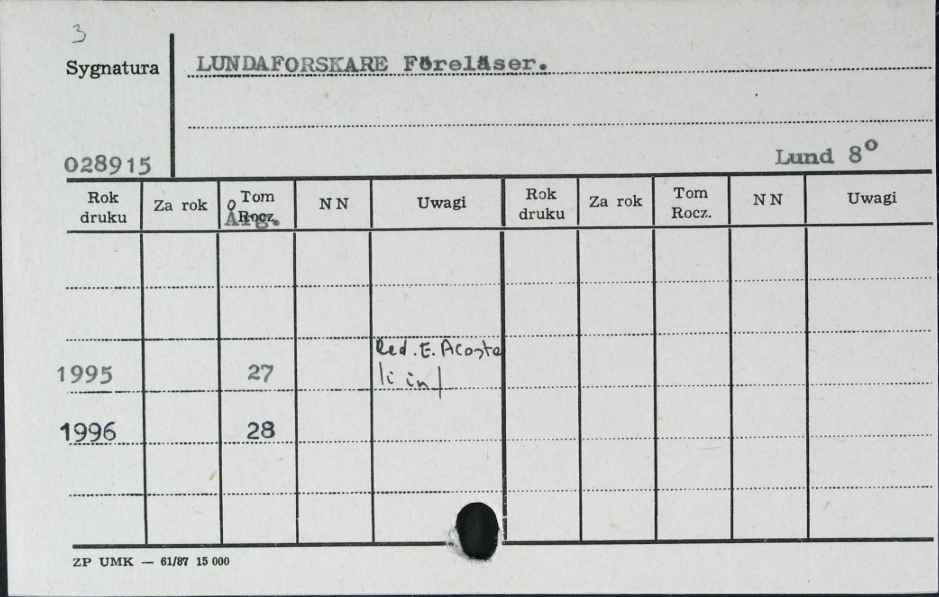 3
Sygnatura LUNDAFORSKARE Föreläser.
028915 Lund 8°
Rok druku Za rok Tom Rocz. Årg. NN Uwagi Rok druku Za rok Tom Rocz. NN Uwagi
Red. E. Acosta
1995 27 li in
1996 28
ZP UMK — 61/87 15 000